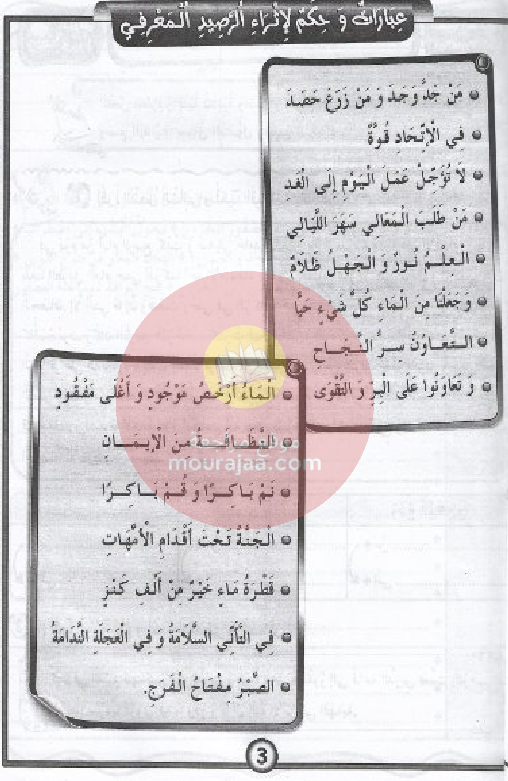 عِبَارَاتٌ وَ حِكَمٌ لِإِثْرَاءِ الرَّصِيدِ الْمَعْرِفِيِّ
• مَنْ جَدَّ وَجَدَ وَ مَنْ زَرَعَ حَصَدَ
• فِي الْإِتِّحَادِ قُوَّةٌ
• لَا تُؤَجِّلْ عَمَلَ الْيَوْمِ إِلَى الْغَدِ
• مَنْ طَلَبَ الْمَعَالِي سَهَرَ اللَّيَالِي
• الْعِلْمُ نُورٌ وَ الْجَهْلُ ظَلَامٌ
• وَ جَعَلْنَا مِنَ الْمَاءِ كُلَّ شَيْءٍ حَيًّا
• التَّعَاوُنُ سِرُّ النَّجَاحِ
• وَ تَعَاوَنُوا عَلَى الْبِرِّ وَ التَّقْوَى
• الْمَاءُ أَرْخَصُ مَوْجُودٍ وَ أَغْلَى مَفْقُودٍ
• النَّظَافَةُ مِنَ الْإِيمَانِ
• نَمْ بَاكِرًا وَ قُمْ بَاكِرًا
• الْجَنَّةُ تَحْتَ أَقْدَامِ الْأُمَّهَاتِ
• قَطْرَةُ مَاءٍ خَيْرٌ مِنْ أَلْفِ كَنْزٍ
• فِي التَّأَنِّي السَّلَامَةُ وَ فِي الْعَجَلَةِ النَّدَامَةُ
• الصَّبْرُ مِفْتَاحُ الْفَرَجِ.
موقع مراجعة
mourajaa.com
3